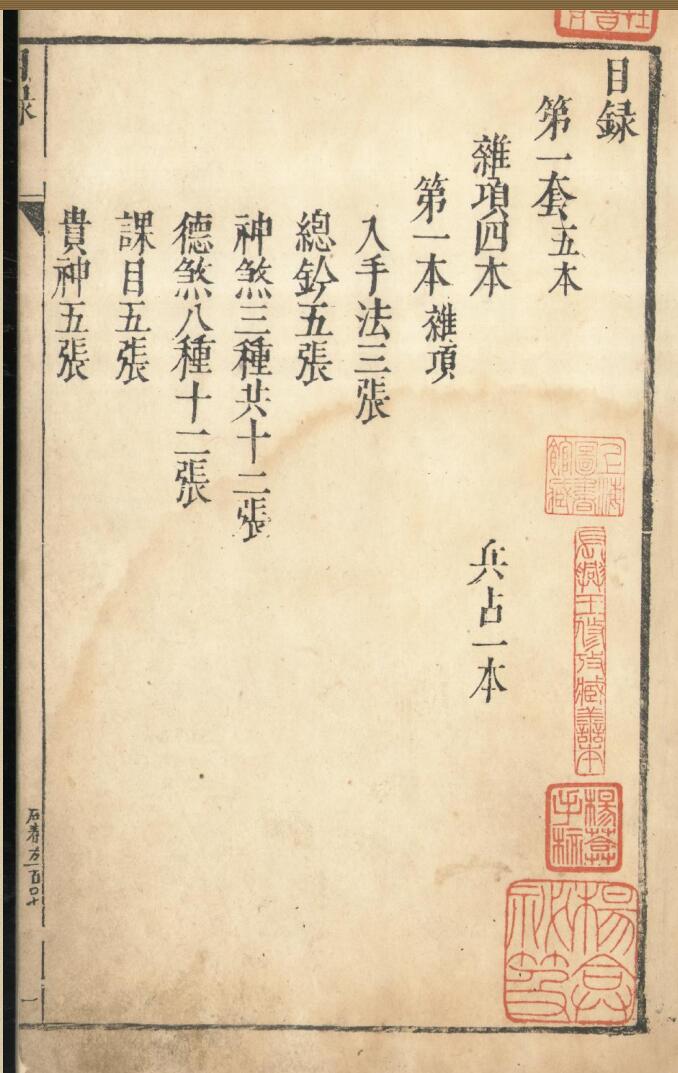 目録
第一套五本
雜項四本 兵占一本
第一本雜項
入手法三張
總鈐五張
神煞三種共十二張
德煞八種十二張
課目五張
貴神五張
目録
一
上海圖書館藏